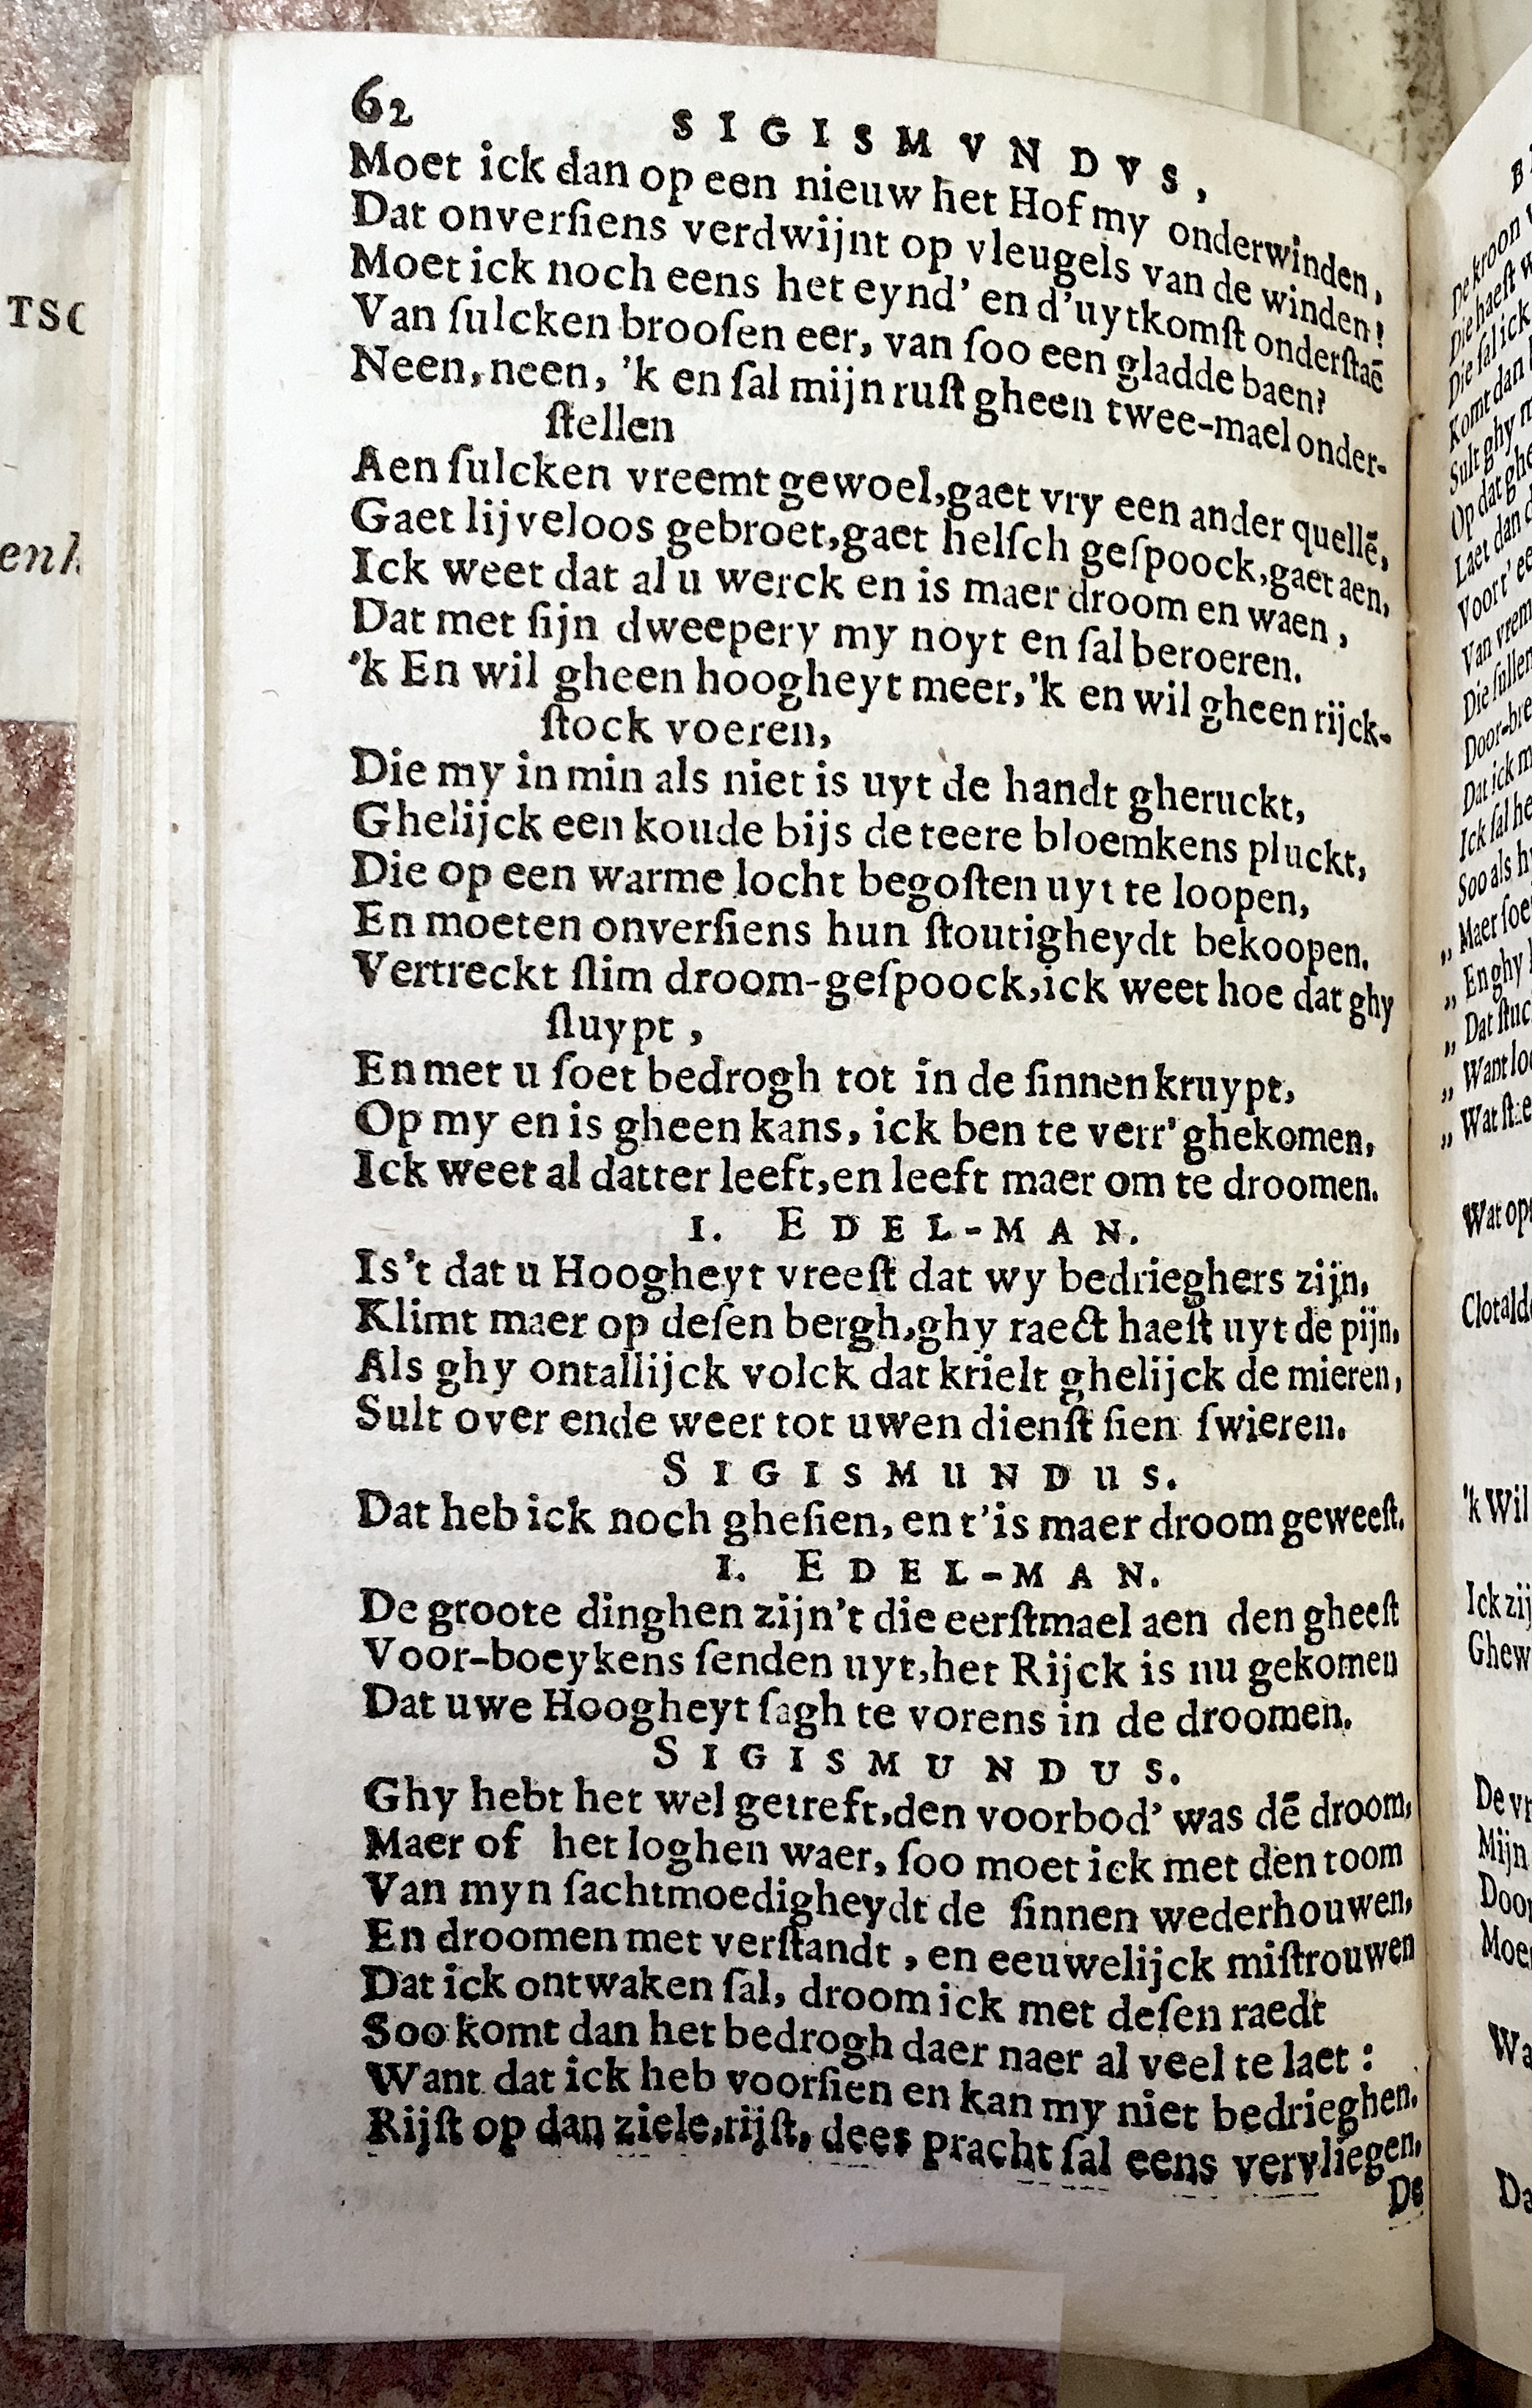 62
SIGISMVNDVS,
Moet ick dan op een nieuw het Hof my onderwinden,
Dat onverſiens verdwijnt op vleugels van de winden!
Moet ick noch eens het eynd' en d'uytkomſt onderſtaē
Van ſulcken brooſen eer, van ſoo een gladde baen?
Neen, neen, 'k en ſal mijn ruſt gheen twee-mael onder-
ſtellen
Aen ſulcken vreemt gewoel, gaet vry een ander quellē,
Gaet lijveloos gebroet, gaet helſch geſpoock, gaet aen,
Ick weet dat al u werck en is maer droom en waen,
Dat met ſijn dweepery my noyt en ſal beroeren.
'k En wil gheen hoogheyt meer, 'k en wil gheen rijck-
ſtock voeren,
Die my in min als niet is uyt de handt gheruckt,
Ghelijck een koude bijs de teere bloemkens pluckt,
Die op een warme locht begoſten uyt te loopen,
En moeten onverſiens hun ſtoutigheydt bekoopen.
Vertreckt ſlim droom-geſpoock, ick weet hoe dat ghy
ſluypt,
En met u ſoet bedrogh tot in de ſinnen kruypt,
Op my en is gheen kans, ick ben te verr' ghekomen,
Ick weet al datter leeft, en leeft maer om te droomen.
I. EDEL-MAN.
Is't dat u Hoogheyt vreeſt dat wy bedrieghers zijn,
Klimt maer op deſen bergh, ghy raeckt haeſt uyt de pijn,
Als ghy ontallijck volck dat krielt ghelijck de mieren,
Sult over ende weer tot uwen dienſt ſien ſwieren.
SIGISMUNDUS.
Dat heb ick noch gheſien, en t'is maer droom geweeſt.
I. EDEL-MAN.
De groote dinghen zijn't die eerſtmael aen den gheeſt
Voor-boeykens ſenden uyt, het Rijck is nu gekomen
Dat uwe Hoogheyt ſagh te vorens in de droomen.
SIGISMUNDUS.
Ghy hebt het wel getreft, den voorbod' was dē droom,
Maer of het loghen waer, ſoo moet ick met den toom
Van myn ſachtmoedigheydt de ſinnen wederhouwen,
En droomen met verſtandt, en eeuwelijck miſtrouwen
Dat ick ontwaken ſal, droom ick met deſen raedt
Soo komt dan het bedrogh daer naer al veel te laet:
Want dat ick heb voorſien en kan my niet bedrieghen.
Rijſt op dan ziele, rijſt, dees pracht ſal eens vervliegen,
De